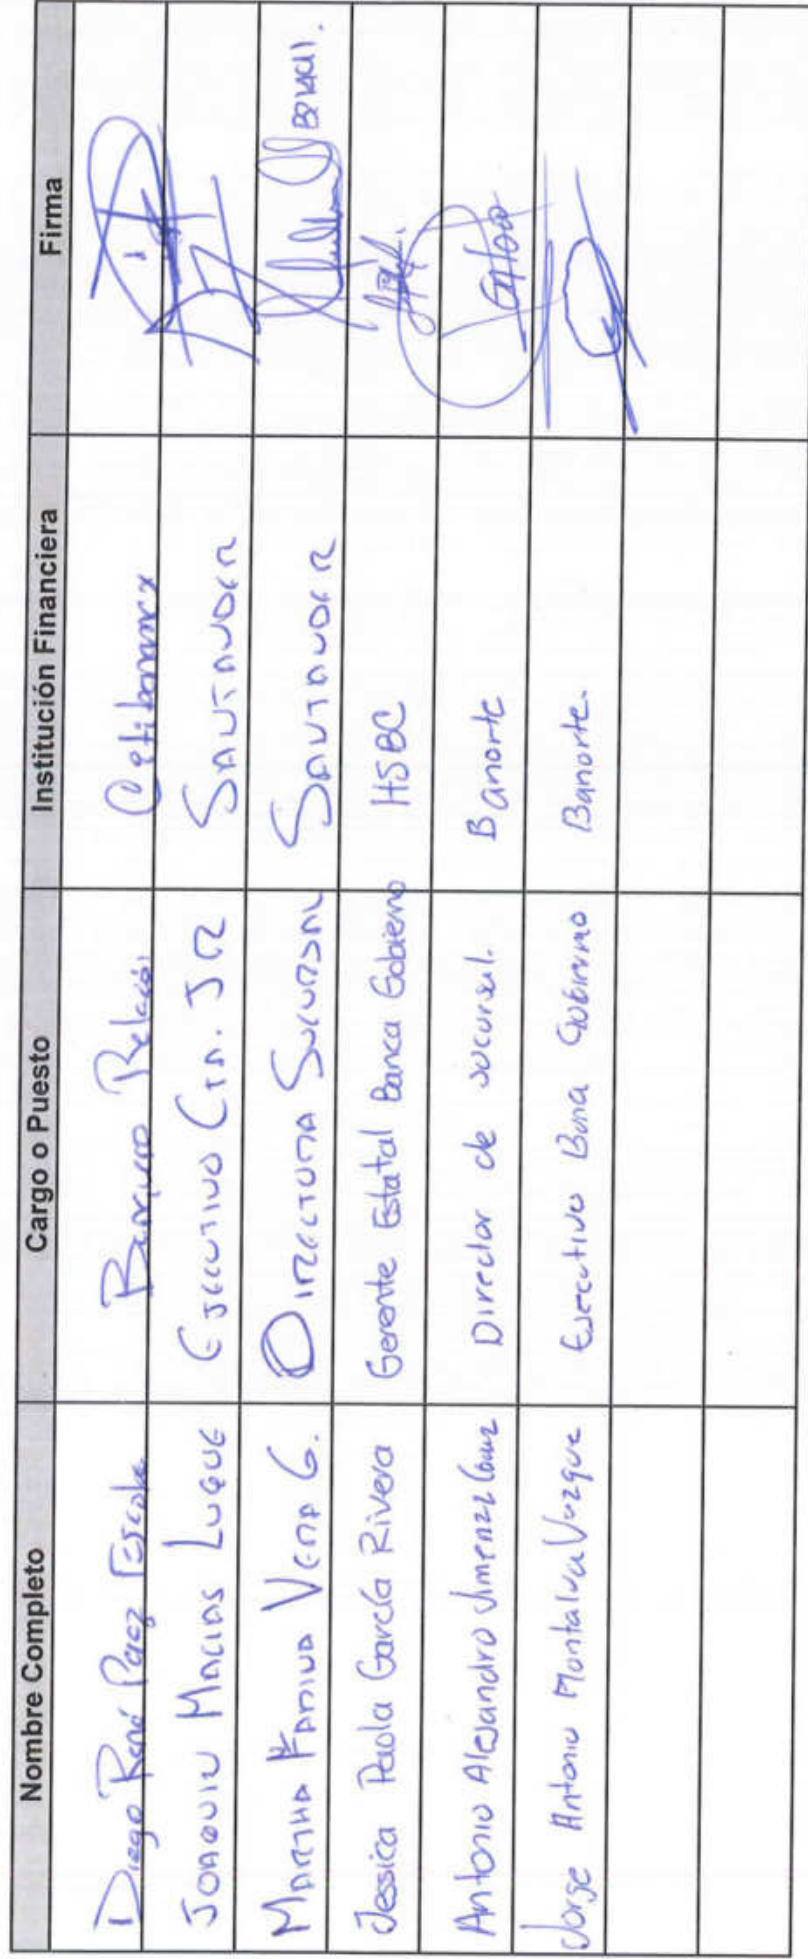 Nombre Completo Cargo o Puesto Institución Financiera Firma
Diego René Pérez Banquero Relación Citibanamex
JOAQUIN MACIAS LUQUE EJECUTIVO CTA. JR SANTANDER
MARTHA KARINA VERA G. DIRECTORA SUCURSAL SANTANDER
Jessica Paola García Rivera Gerente Estatal Banca Gobierno HSBC
Antonio Alejandro Jimenez Director de sucursal. Banorte
Jorge Antonio Montalva Ejecutivo Gobierno Banorte.